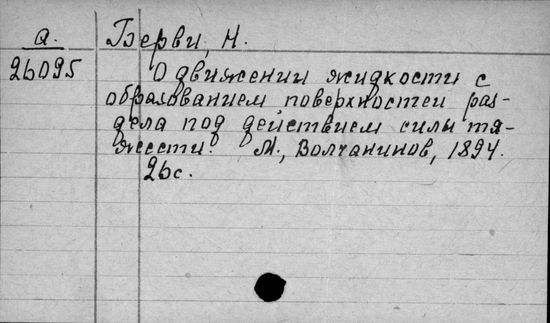 а. Берви, Н.
26095
О движении жидкости с
образованием поверхностей раз-
дела под действием силы тя-
жести. М., Волчанинов, 1894.
26с.